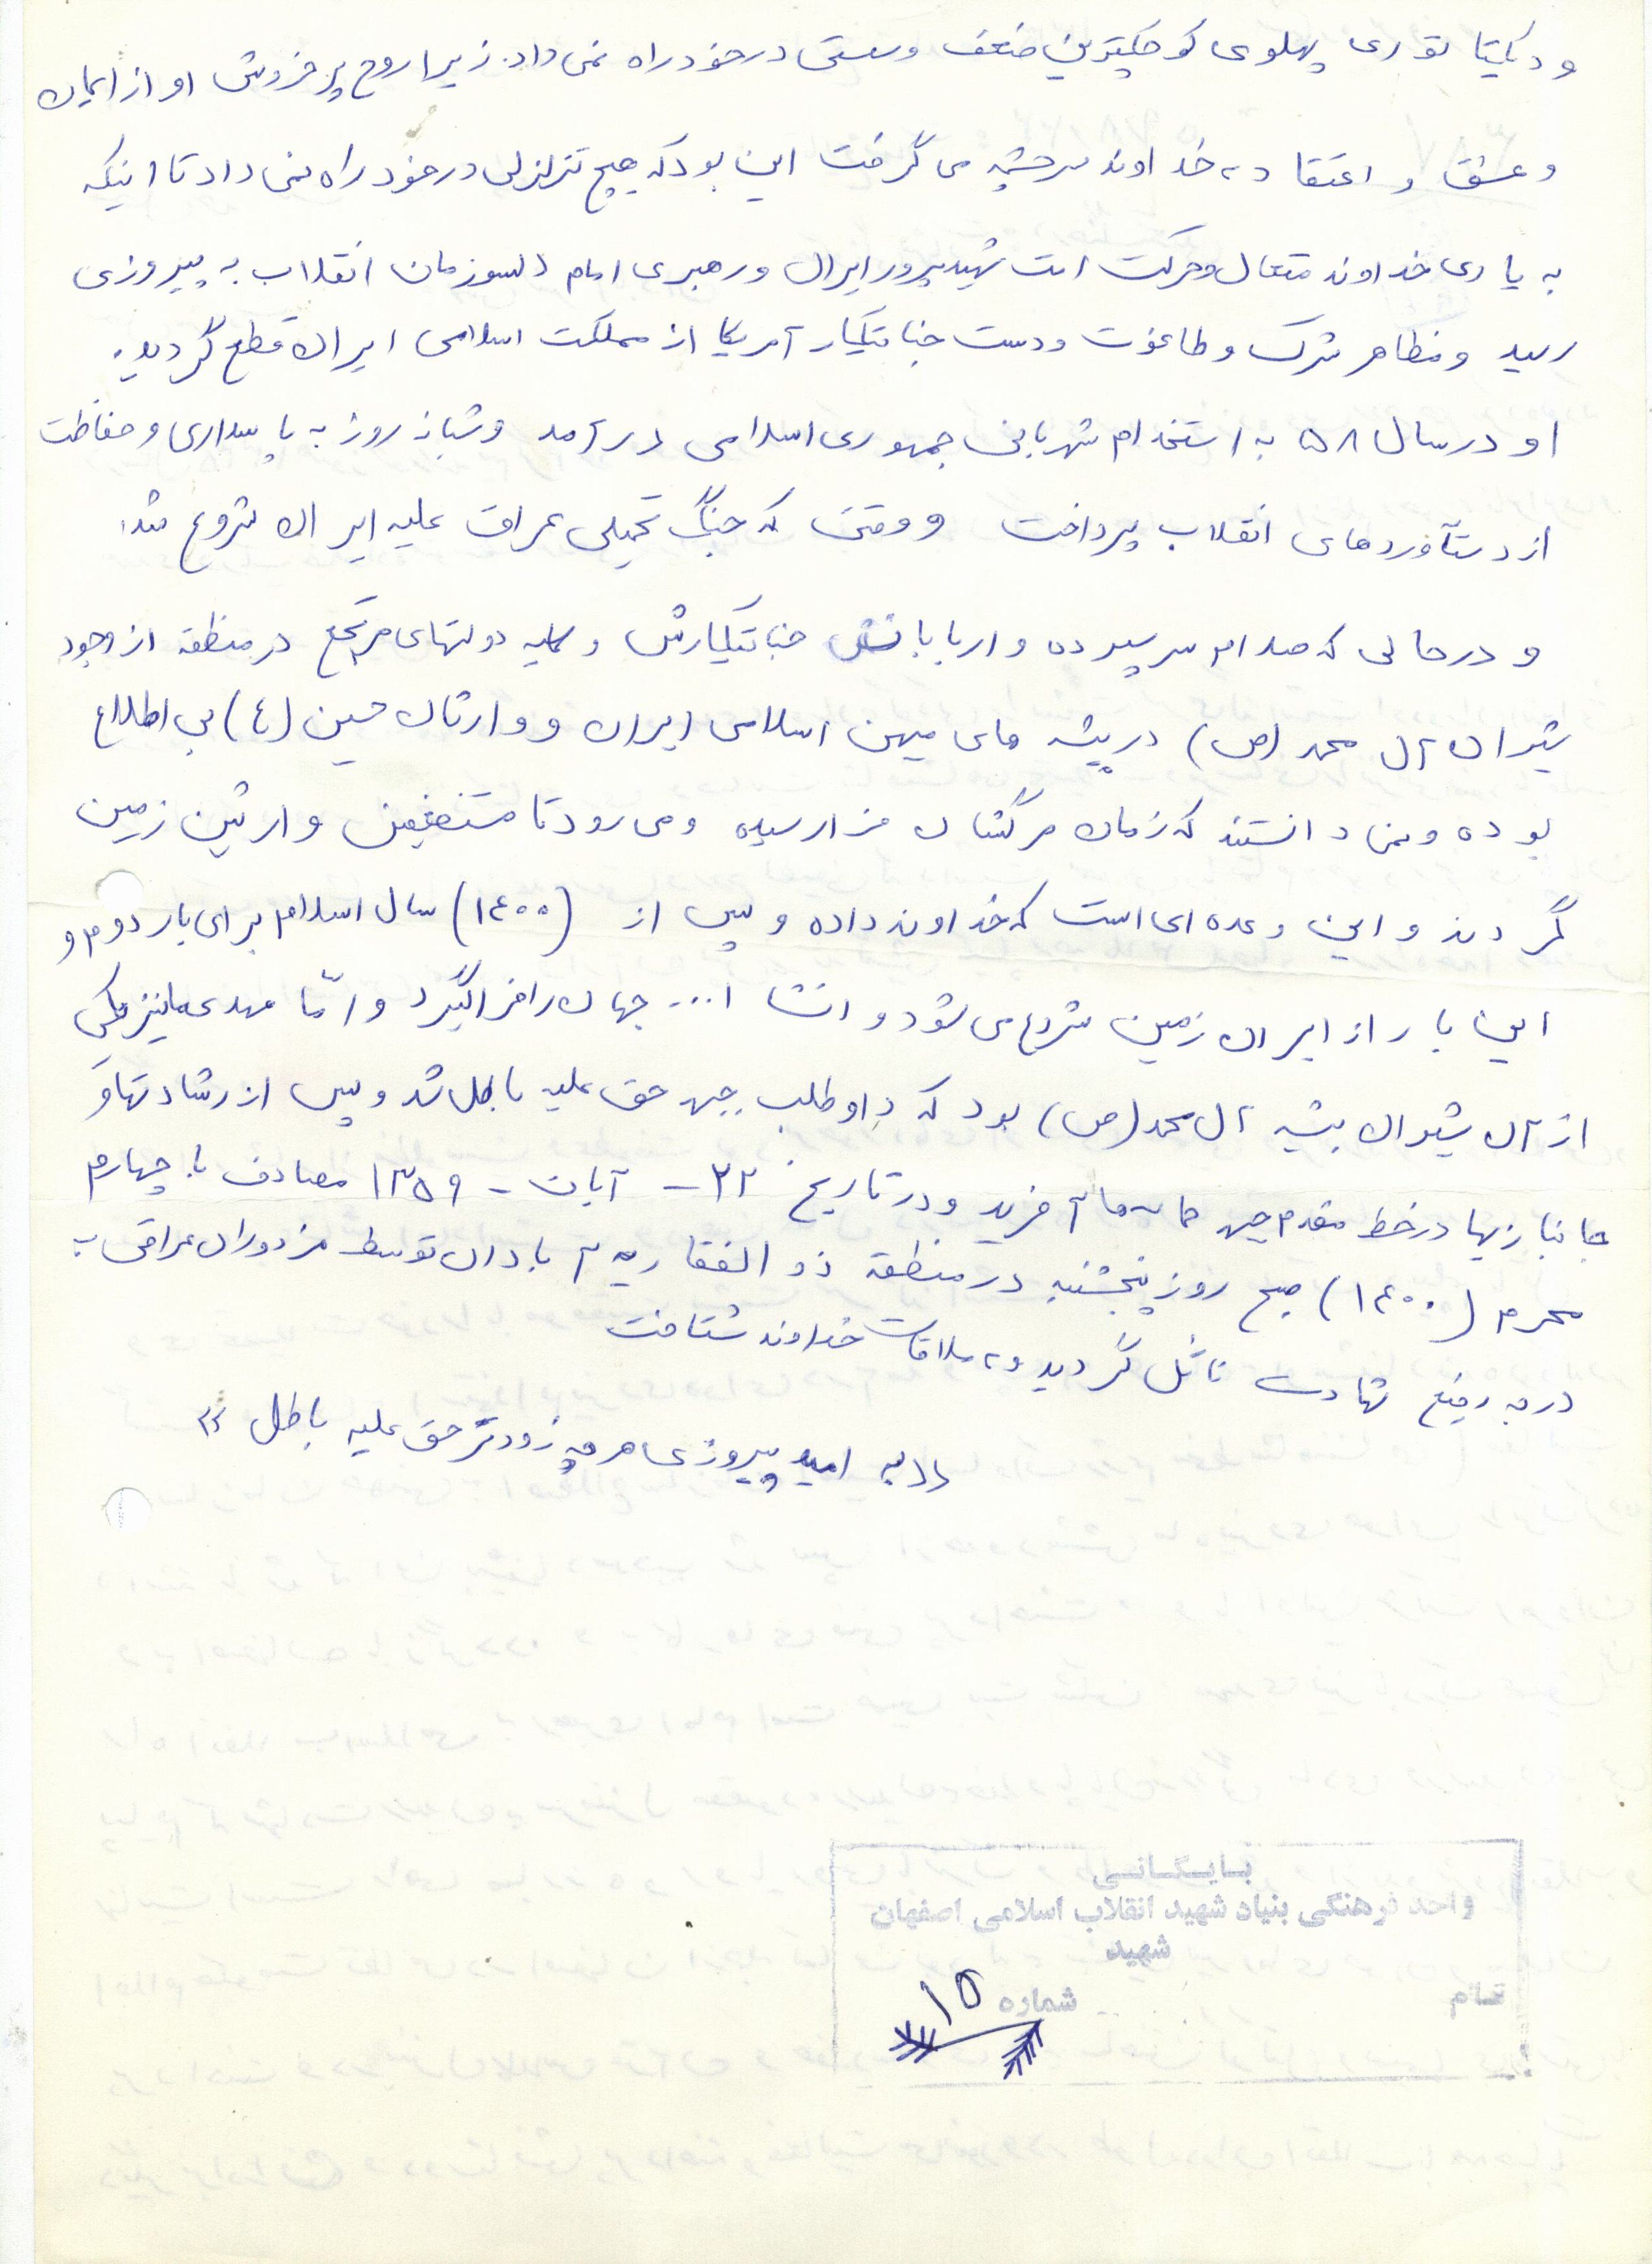 و دیکتاتوری پهلوی کوچکترین ضعف وسستی درخود راه نمی داد. زیرا روح پرخروش او از ایمان
و عشق و اعتقاد به خداوند سرچشمه می گرفت این بود که هیچ تزلزلی در خود راه نمی داد تا اینکه
به یاری خداوند متعال و حرکت امت شهید پرور ایران و رهبری امام دلسوزمان انقلاب به پیروزی
رسید و مظاهر شرک و طاغوت و دست جنایتکار آمریکا از مملکت اسلامی ایران قطع گردید.
او در سال ۵۸ به استخدام شهربانی جمهوری اسلامی درآمد و شبانه روز به پاسداری و حفاظت
از دستآوردهای انقلاب پرداخت و وقتی که جنگ تحمیلی عراق علیه ایران شروع شد.
و درحالی که صدام سرسپرده و اربابانش جنایتکارش و کلیه دولتهای مرتجع در منطقه از وجود
شیران آل محمد (ص) در بیشه های میهن اسلامی ایران و وارثان حسین (ع) بی اطلاع
بوده و نمی دانستند که زمان مرگشان فرا رسیده و می رود تا مستضعفین وارثین زمین
گردند و این وعده ای است که خداوند داده و پس از (۱۴۰۰) سال اسلام برای بار دوم و
این بار از ایران زمین شروع می شود و انشا ا... جهان را فراگیرد و امّا مهدی ما نیز یکی
از آن شیران بیشه آل محمد (ص) بود که داوطلب جبهه حق علیه باطل شد و پس از رشادتها و
جانبازیها در خط مقدم جبهه حماسه ها آفرید و در تاریخ ۲۲ - آبان - ۱۳۵۹ مصادف با چهارم
محرم (۱۴۰۰) صبح روز پنجشنبه در منطقه ذوالفقاریه آبادان توسط مزدوران عراقی به
درجه رفیع شهادت نائل گردید و به ملاقات خداوند شتافت
«به امید پیروزی هر چه زودتر حق علیه باطل»
بایگانی
واحد فرهنگی بنیاد شهید انقلاب اسلامی اصفهان
شهید
شماره ۱۵